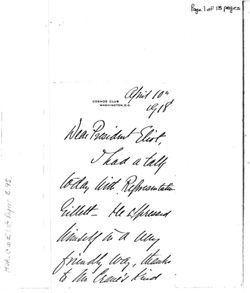 Page 1 of 15 pages
April 10th
1918
COSMOS CLUB
WASHINGTON, D.C.
Dear President Eliot,
I had a talk
today with Representative
Gillett. He expressed
himself in a very
friendly way, thanks
to Mr Crane's kind